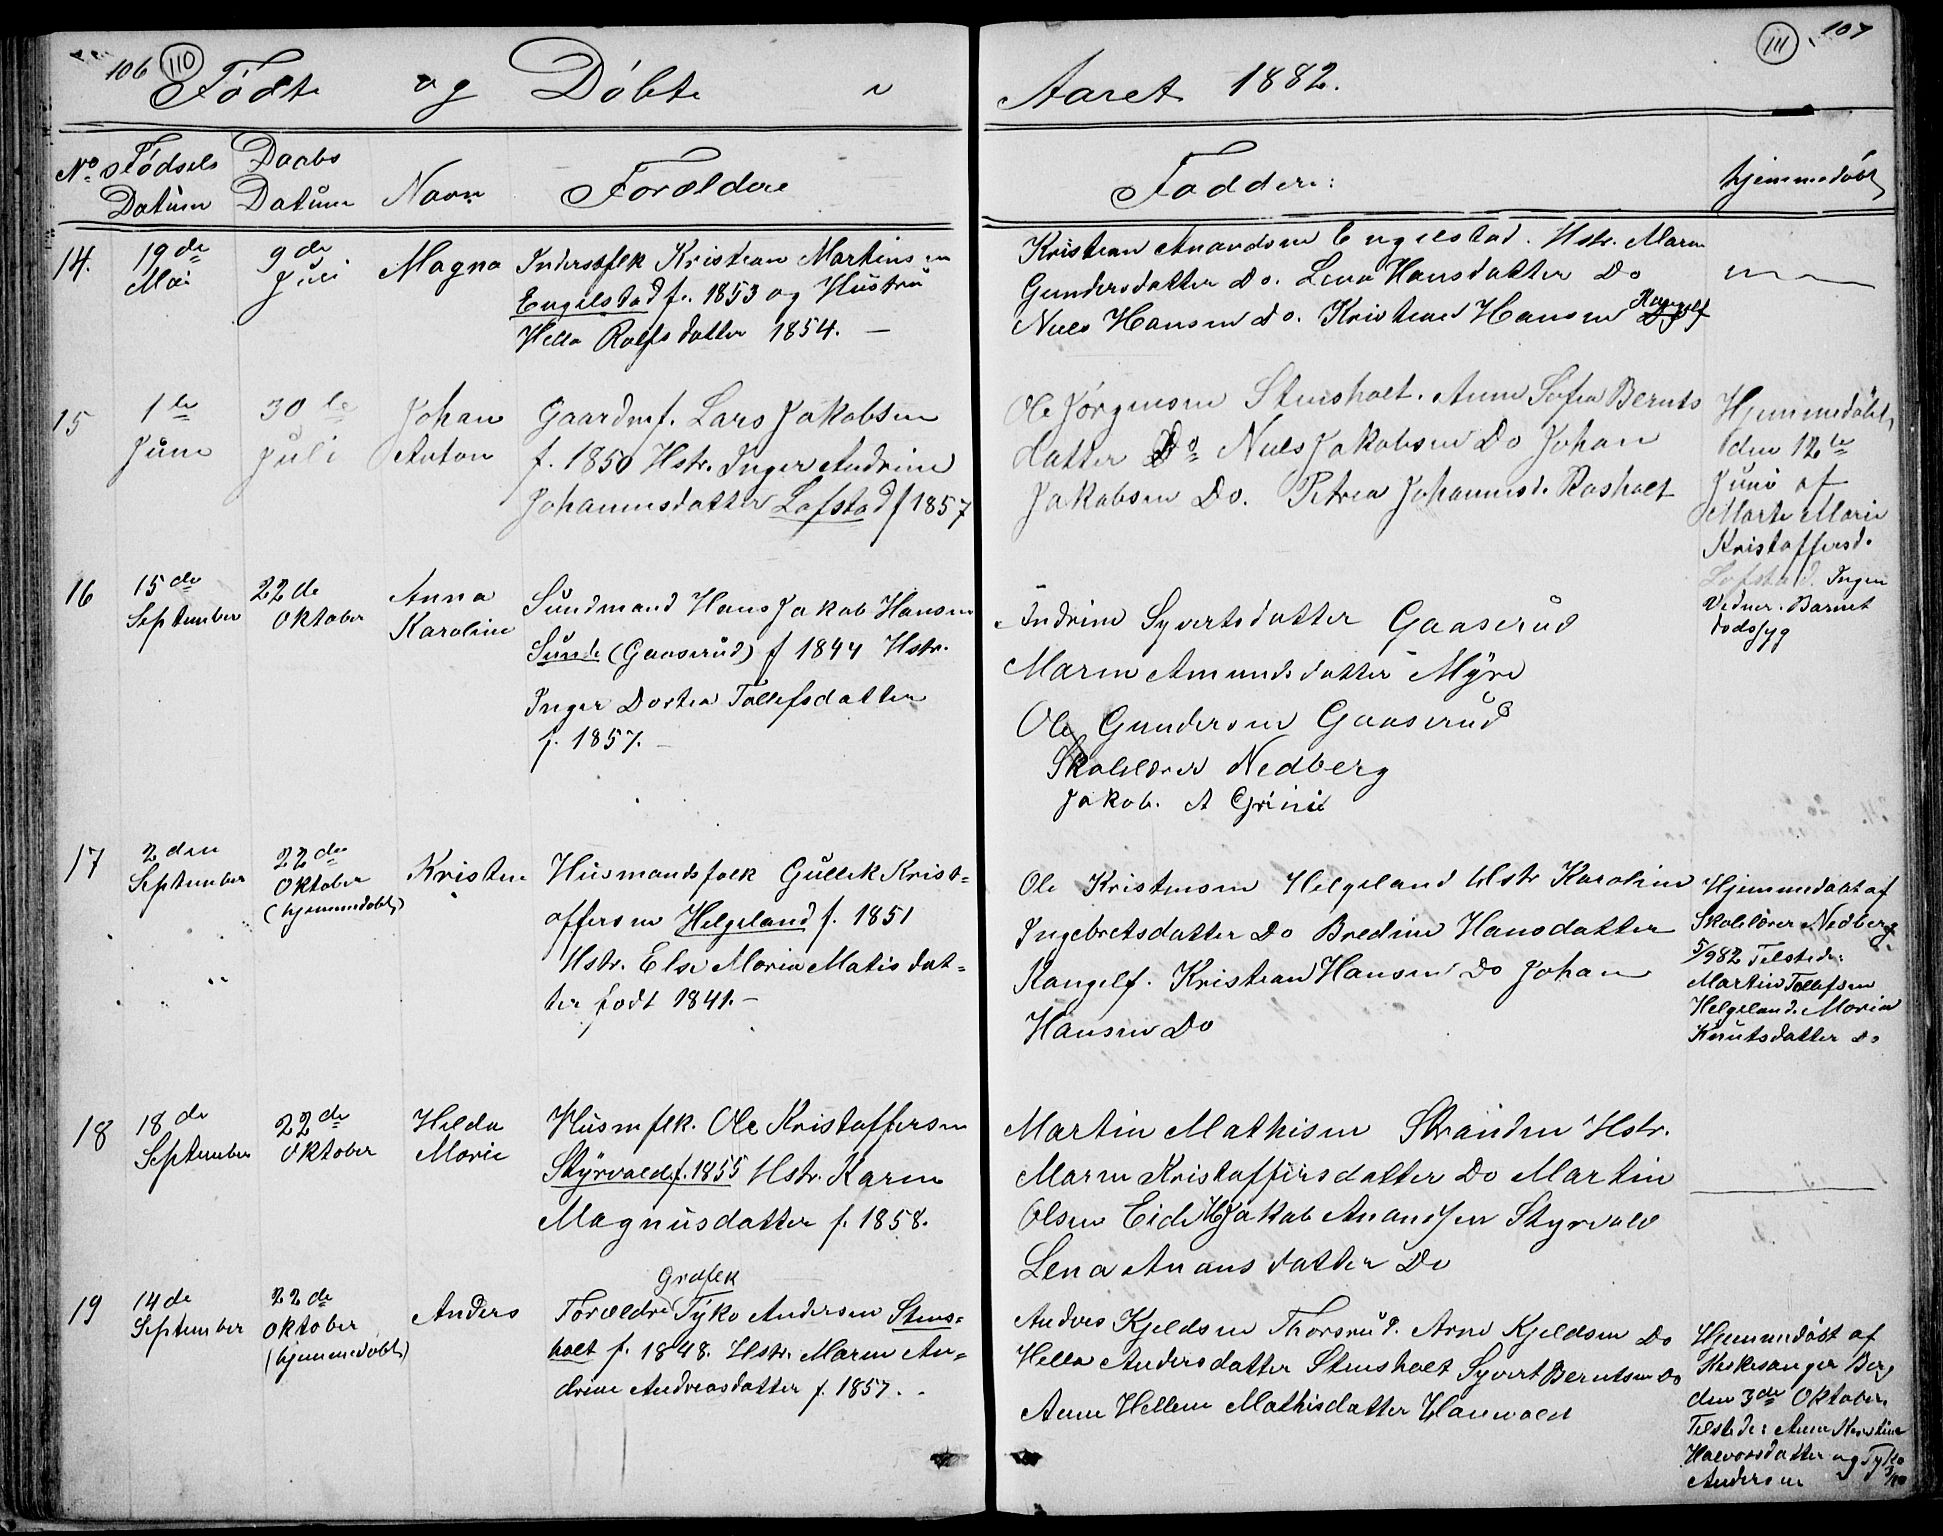 106 110
Fødte og Døbte i
No Fødsels Datum
Daabs Datum
Navn
Forældre
14. 19de Mai
9de Juli
Magna
Inderstfolk Kristian Martinsen
Engelstad f. 1853 og Hustru
Hella Rolfsdatter 1854. —
15 1ste Juni
30te Juli
Johan Anton
Gaardmf. Lars Jakobsen
f. 1850 Hstr. Inger Andrine
Johannesdatter Lofstad f 1857
16 15de September
22de Oktober
Anna Karoline
Sundmand Hans Jakob Hansen
Sunde (Gaaserud) f 1844 Hstr.
Inger Dortea Tollefsdatter
f. 1857. —
17 2den September
22de Oktober (hjemmedøbt)
Kristen
Husmandsfolk Gullik Krist=
offersen Helgeland f. 1851
Hstr. Else Maria Matisdat=
ter født 1841. —
18 18de September
22de Oktober
Hilda Marie
Husmflk. Ole Kristoffersen
Styrvold f. 1855 Hstr. Karen
Magnusdatter f. 1858.
Grdflk
19 14de September
22de Oktober (hjemmedøbt)
Anders
Forældre Tyko Andersen Stens=
holt f. 1848. Hstr. Maren An=
drine Andreasdatter f. 1857.
111 107
Aaret 1882.
Faddere:
hjemmedøbt
Kristian Anundsen Engelstad. Hstr. Maren
Gundersdatter Do. Lena Hansdatter Do
Niels Hansen do. Kristian Hansen Rangelf
Ole Jørgensen Stensholt. Anne Sofia Bernts
datter Do Niels Jakobsen Do Johan
Jakobsen Do. Petrea Johannesd. Rasholt
Hjemmedøbt
den 12te
Juni af
Marte Marie
Kristoffersd.
Lofstad. Ingen
Vidner. Barnet
dødssyg
Andrine Syvertsdatter Gaaserud
Maren Amundsdatter Myre
Ole Gundersen Gaaserud
Skolelærer Nedberg
Jakob. A Grini
Ole Kristensen Helgeland Hstr Karoline
Ingebretsdatter Do Bredine Hansdatter
Rangelf. Kristian Hansen Do Johan
Hansen Do
Hjemmedøbt af
Skolelærer Nedberg
5/9 82 Tilstede:
Martin Tollefsen
Helgeland. Maria
Knutsdatter do
Martin Mathisen Stranden Hstr.
Maren Kristoffersdatter Do Martin
Olsen Eide Jakob Anansen Styrvold
Lena Anansdatter Do
Andres Kjeldsen Thorsrud. Arne Kjeldsen Do
Hella Andersdatter Stensholt Syvert Berntsen Do
Anne Hellene Mathisdatter Hanevold
Hjemmedøbt af
Kirkesanger Berg
den 3de Oktober.
Tilstede: Anne Kristine
Halvorsdatter og Tyko
Andersen